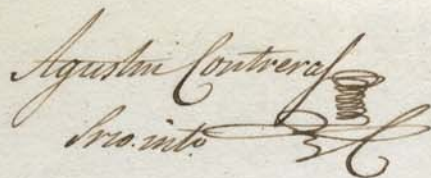 Agustin Contreras
Srio. into.